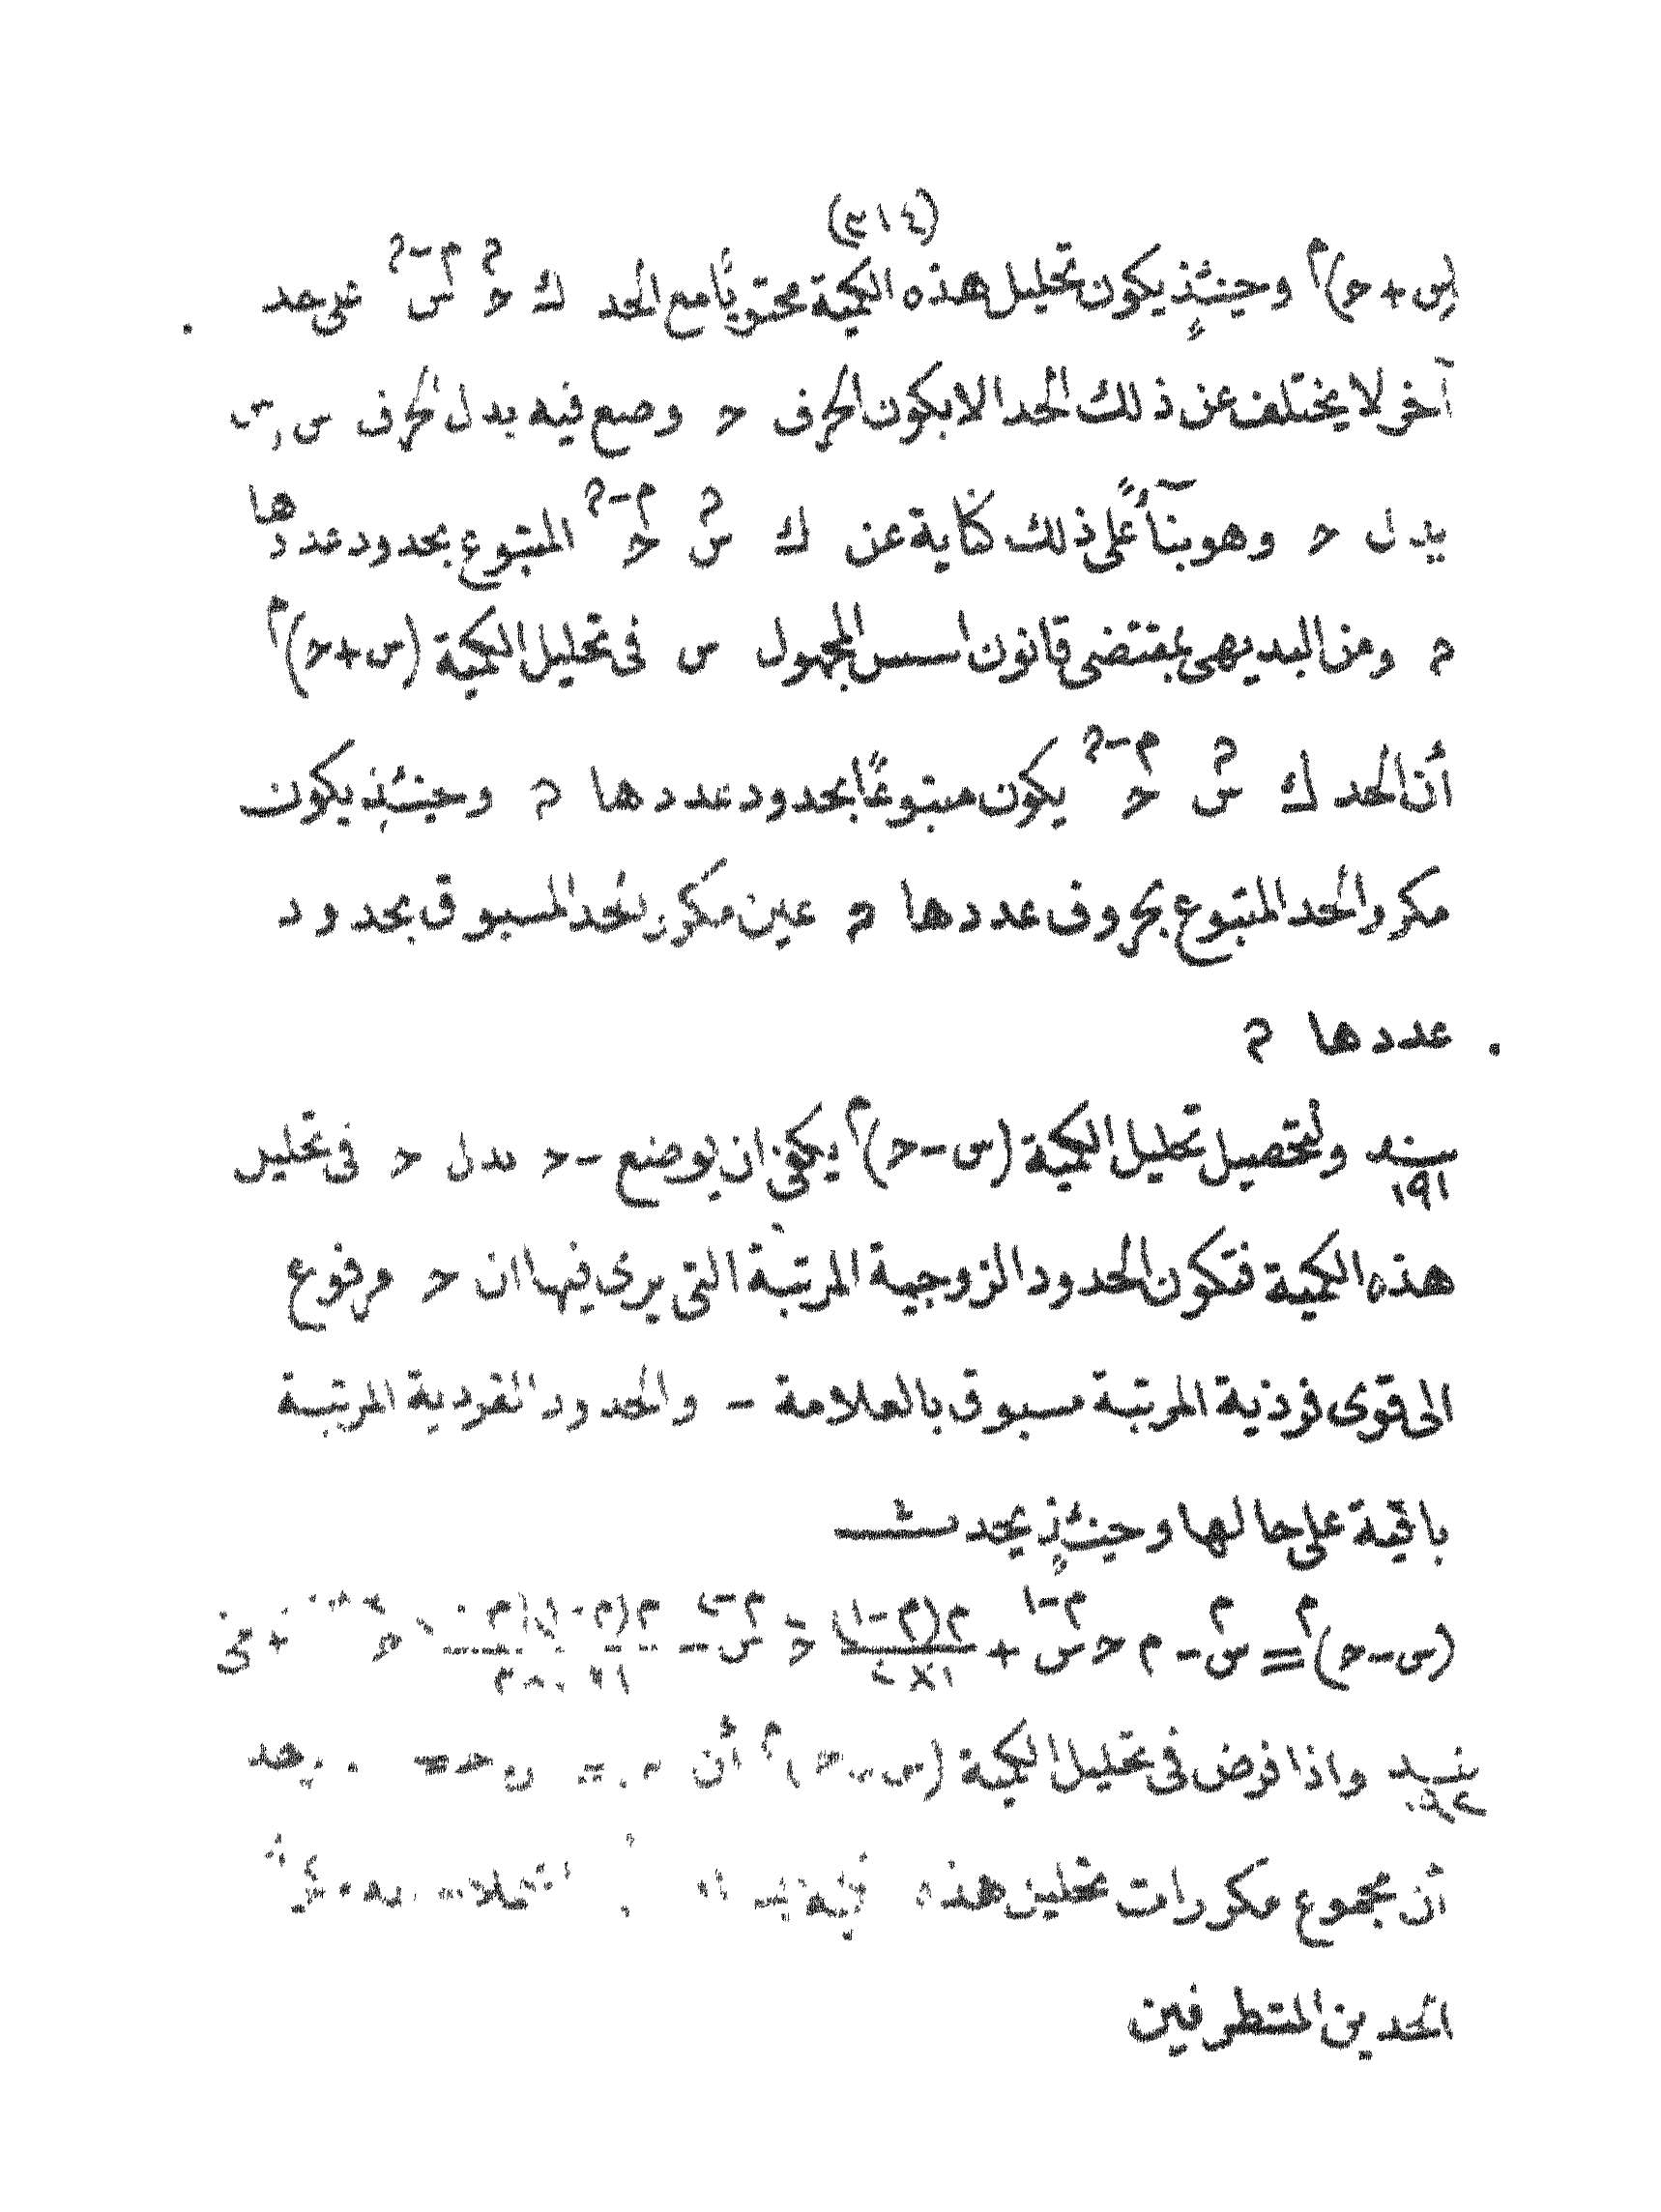 (٢١٤)
(س+حـ)^م وحينئذٍ يكون تحليل هذه الكمية محتويًا مع الحد ك حـ^ﻥ س^(م-ﻥ) على حد
آخر لا يختلف عن ذلك الحد الا بكون الحرف حـ وضع فيه بدل الحرف س و س
بدل حـ وهو بنآءً على ذلك كناية عن ك س^ﻥ حـ^(م-ﻥ) المتبوع بحدود عددها
ﻥ ومن البديهى بمقتضى قانون اسس المجهول س فى تحليل الكمية (س+حـ)^م
أن الحد ك س^ﻥ حـ^(م-ﻥ) يكون متبوعًا بحدود عددها ﻥ وحينئذٍ يكون
مكرر الحد المتبوع بحروف عددها ﻥ عين مكرر الحد المسبوق بحدود
عددها ﻥ
بند ١٩١ ولتحصيل تحليل الكمية (س-حـ)^م يكفى ان يوضع -حـ بدل حـ فى تحليل
هذه الكمية فتكون الحدود الزوجية المرتبة التى يرى فيها ان حـ مرفوع
الى قوى فردية المرتبة مسبوق بالعلامة - والحدود الفردية المرتبة
باقية على حالها وحينئذٍ يحدث
(س-حـ)^م = س^م - م حـ س^(م-١) + م(م-١)/١×٢ حـ^٢ س^(م-٢) -
بند واذا فرض فى تحليل الكمية (س حـ)^م أن = حـ =
أن مجموع مكررات تحليل هذه
الحدين المتطرفين